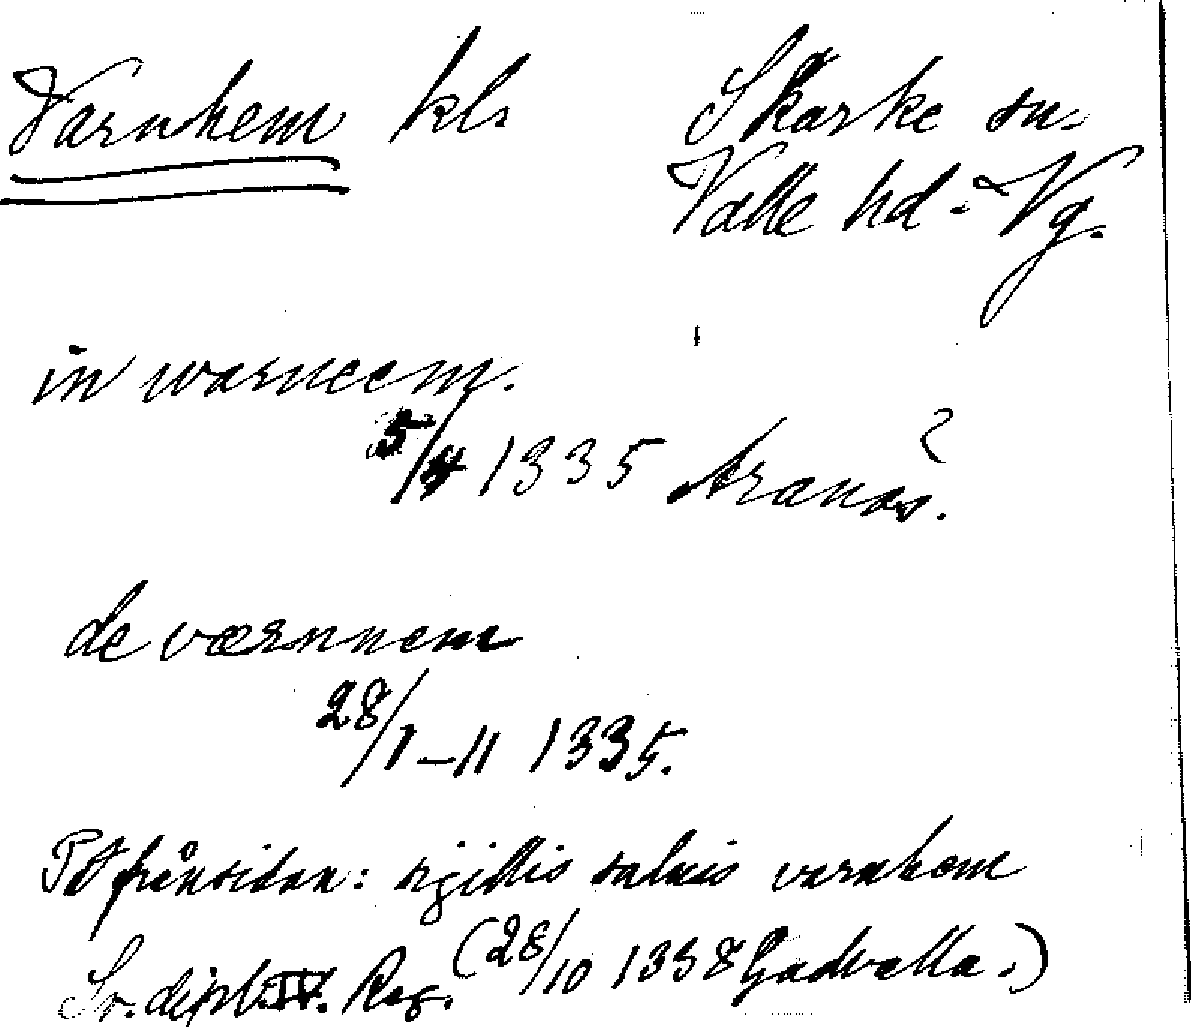 Varnhem kl. Skarke sn.
Valle hd. Vg.
in warneem.
5/4 1335 Aranäs. ?
de værnnem
28/1-11 1335.
På frånsidan: sigillis saluis varnhem
Sv. dipl. IV. Reg. (28/10 1338 Gudvalla.)